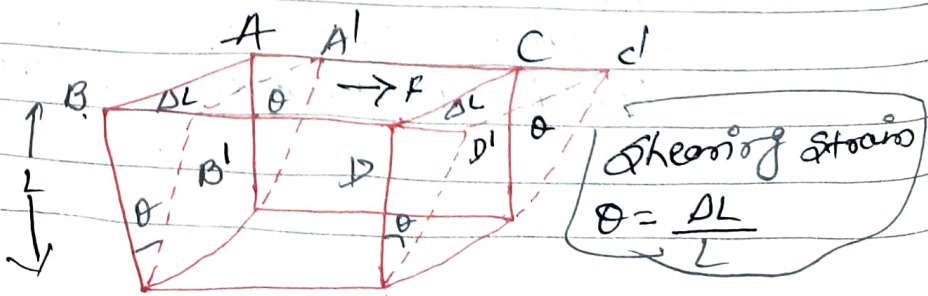 A A' C C'
B ΔL θ → F ΔL
L B' D D' θ
θ θ
Shearing Strain
θ = ΔL / L